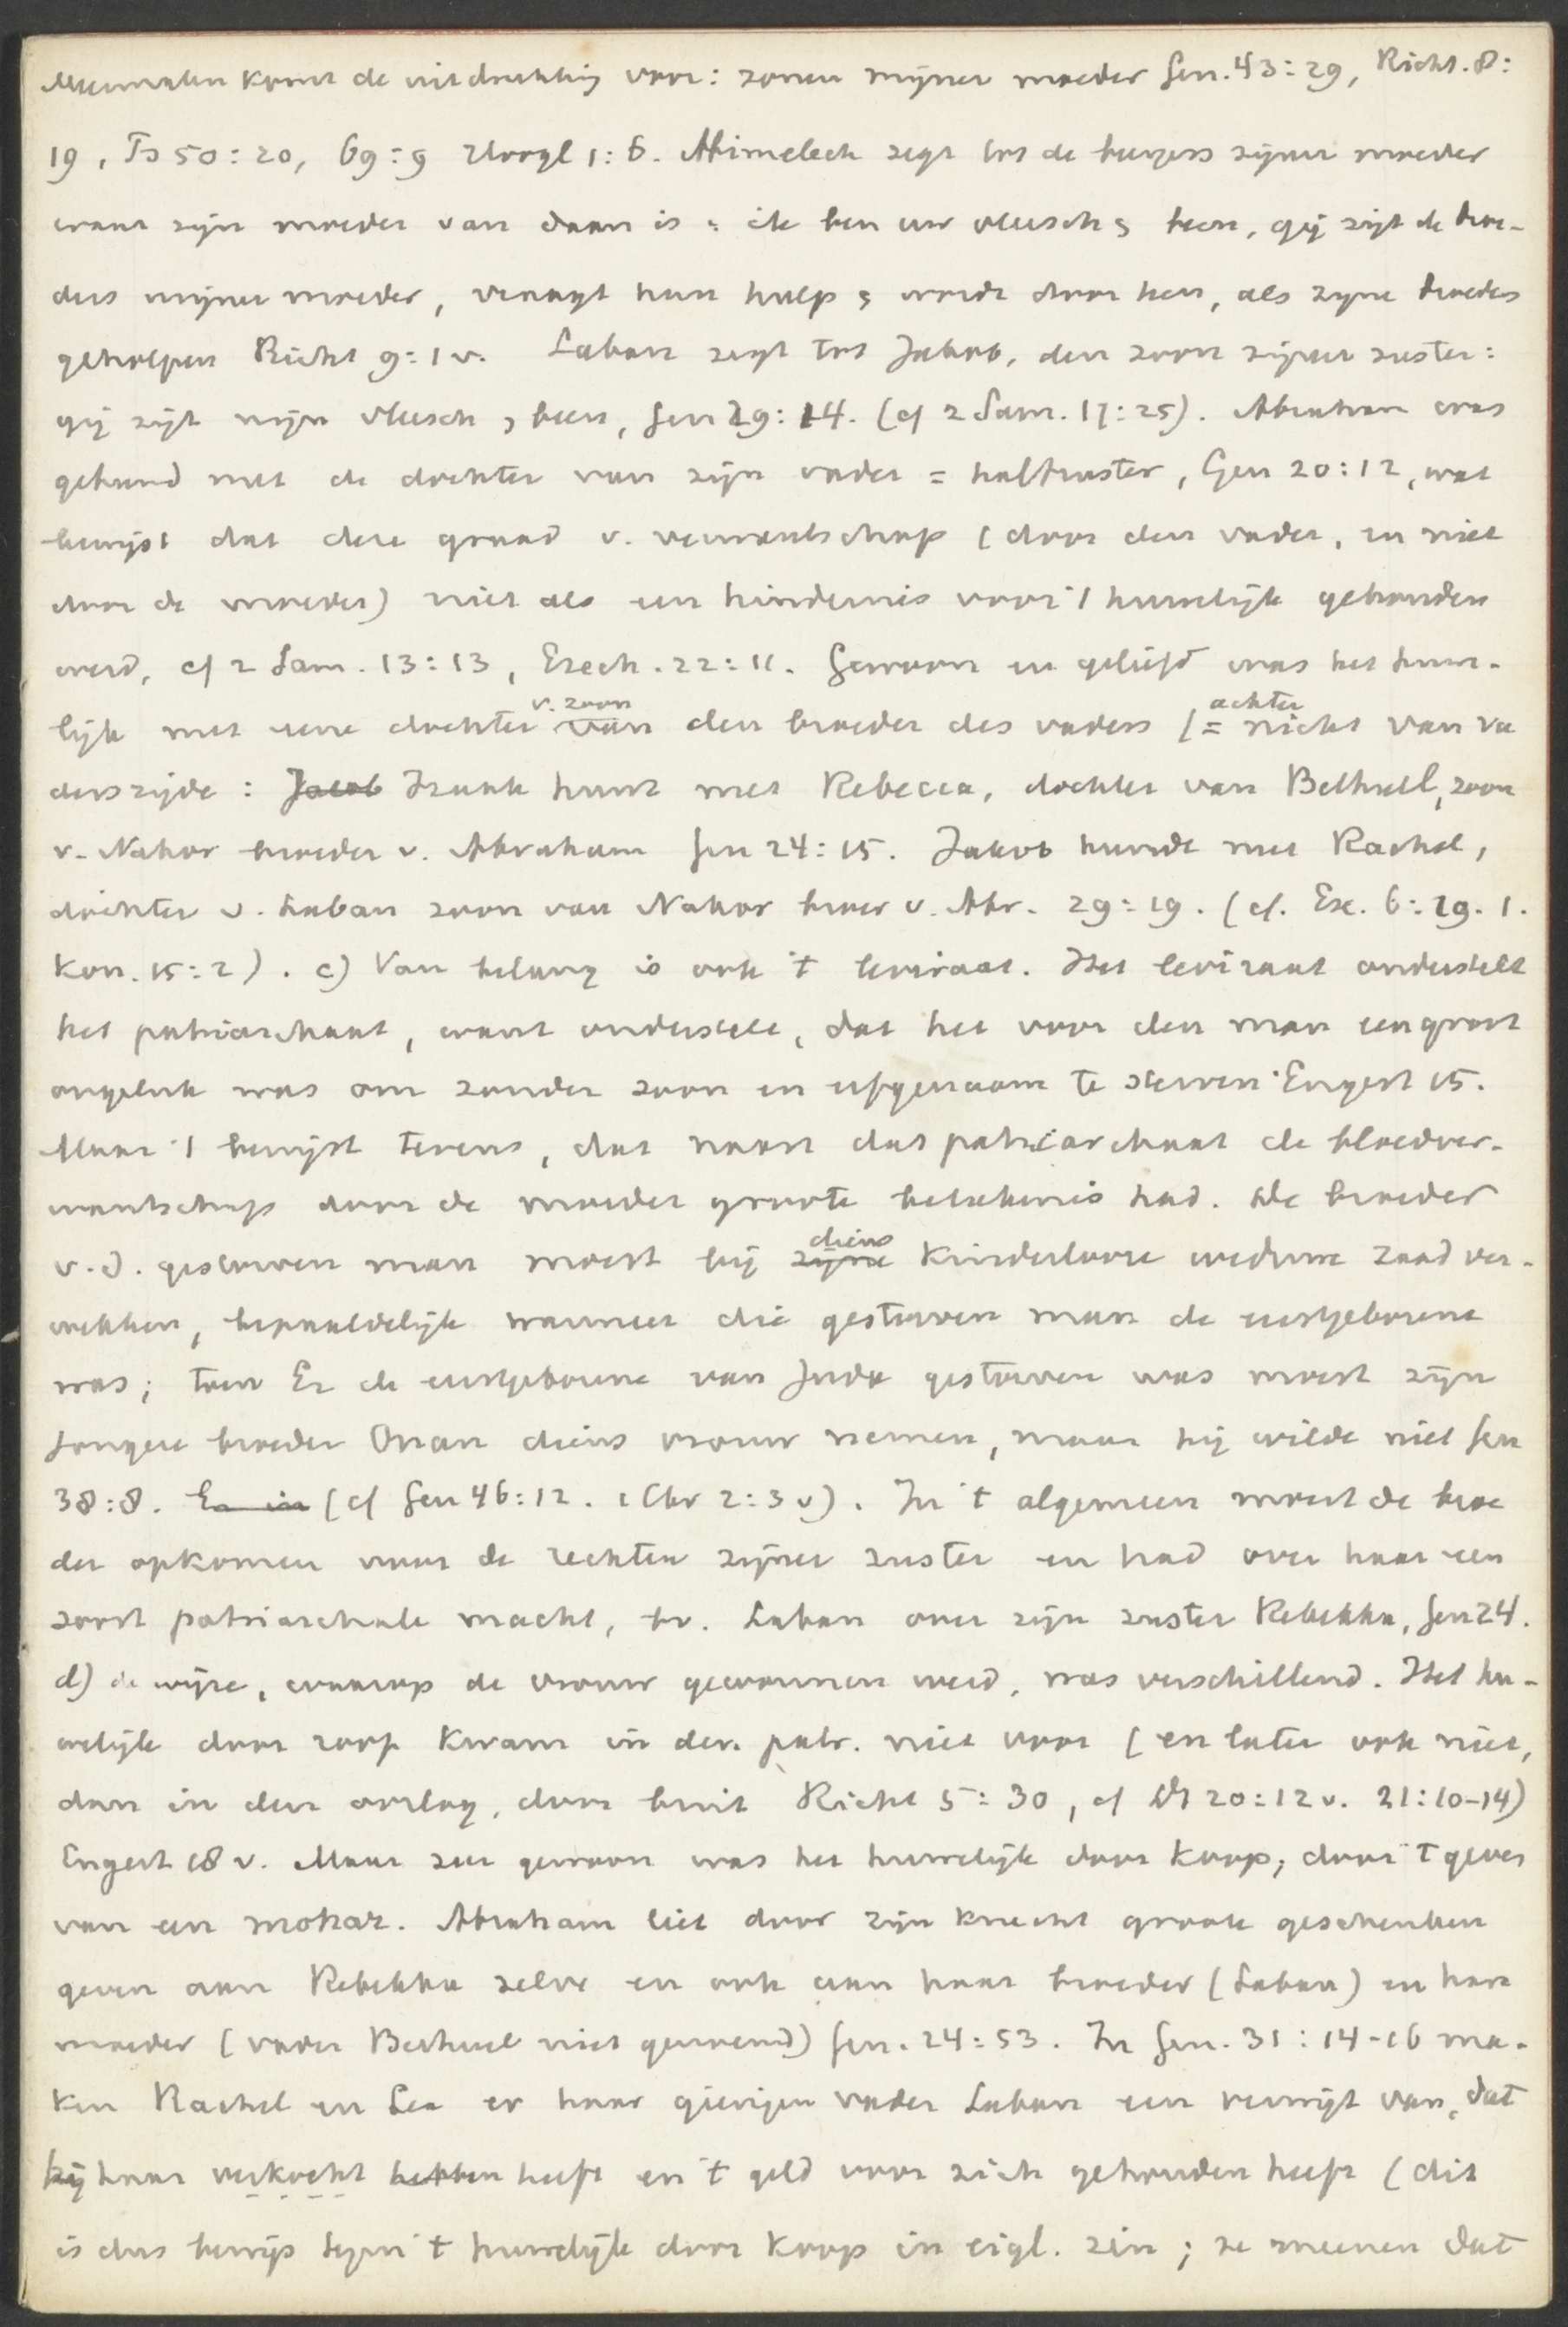 Meermalen komt de uitdrukking voor: zonen mijner moeder Gen. 43:29, Richt. 8:
19, Ps 50:20, 69:9 Hoogl 1:6. Abimelech zegt tot de burgers zijner moeder
waar zijn moeder van daan is: ik ben uw vleesch & been, gij zijt de broe-
ders mijner moeder, vraagt hun hulp & wordt door hen, als zijne broeders
geholpen Richt 9:1 v. Laban zegt tot Jakob, den zoon zijner zuster:
gij zijt mijn vleesch & been, Gen 29:14. (cf 2 Sam. 17:25). Abraham was
gehuwd met de dochter van zijn vader = halfzuster, Gen 20:12, wat
bewijst dat deze graad v. verwantschap (door den vader, en niet
door de moeder) niet als een hindernis voor 't huwelijk gehouden
werd, cf 2 Sam. 13:13, Ezech. 22:11. Gewoon en geliefd was het huwe-
lijk met eene dochter v. zoon van den broeder des vaders (= achternicht van va
derszijde: Jacob Izaak huwt met Rebecca, dochter van Bethuel, zoon
v. Nahor broeder v. Abraham Gen 24:15. Jakob huwde met Rachel,
dochter v. Laban zoon van Nahor broer v. Abr. 29:19. (cf. Ex. 6:19. 1.
Kon. 15:2). c) Van belang is ook 't leviraat. Het leviraat onderstelt
het patriarchaat, want onderstelt, dat het voor den man een groot
ongeluk was om zonder zoon en erfgenaam te sterven Engert 15.
Maar 't bewijst tevens, dat naast dat patriarchaat de bloedver-
wantschap door de moeder groote beteekenis had. De broeder
v.d. gestorven man moest bij zijne diens kinderlooze weduwe zaad ver-
wekken, bepaaldelijk wanneer die gestorven man de eerstgeborene
was; toen Er de eerstgeborene van Juda gestorven was moest zijn
jongere broeder Onan diens vrouw nemen, maar hij wilde niet Gen
38:8. En in (cf Gen 46:12. 1 Chr 2:3 v). In 't algemeen moest de broe
der opkomen voor de rechten zijner zuster en had over haar een
soort patriarchale macht, bv. Laban over zijn zuster Rebekka, Gen 24.
d) de wijze, waarop de vrouw gewonnen werd, was verschillend. Het hu-
welijk door roof kwam in den patr. niet voor (en later ook niet,
dan in den oorlog, door buit Richt 5:30, cf Dt 20:12 v. 21:10-14)
Engert 18 v. Maar zeer gewoon was het huwelijk door koop, door 't geven
van een mohar. Abraham liet door zijn knecht groote geschenken
geven aan Rebekka zelve en ook aan haar broeder (Laban) en hare
moeder (vader Bethuel niet genoemd) Gen. 24:53. In Gen. 31:14-16 ma-
ken Rachel en Lea er haar gierigen vader Laban een verwijt van, dat
hij haar verkocht hebben heeft en 't geld voor zich gehouden heeft (dit
is dus bewijs tegen 't huwelijk door koop in eigl. zin; ze meenen dat